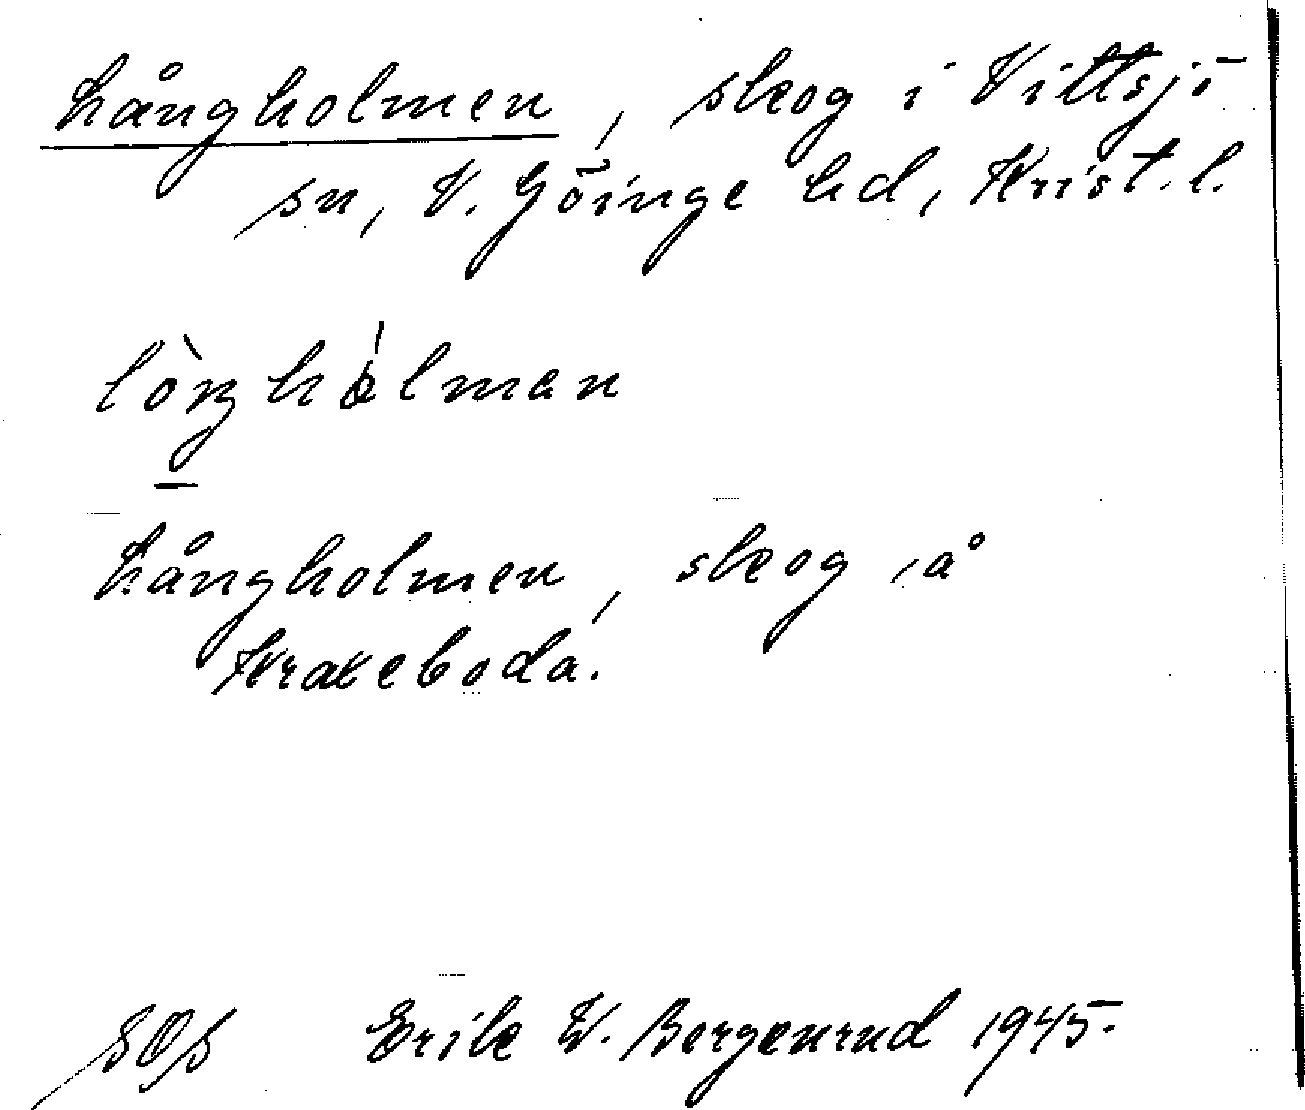 Långholmen, skog i Vittsjö
sn, V. Göinge hd, Krist. l.
lòŋhólman
Långholmen, skog å
Krakeboda.
Erik W. Bergenrud 1945.